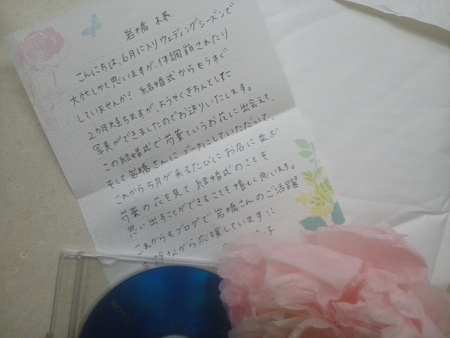 岩橋 様
こんにちは。6月に入りウェディングシーズンで
大忙しかと思いますが、体調崩されたり
していませんか? 結婚式からもうすぐ
2カ月たちますが、ようやくきちんとした
写真ができましたのでお送りいたします。
この結婚式で芍薬というお花に出会えて、
そして岩橋さんにブーケにしていただいて、
これから5月が来るたびにお店に並ぶ
芍薬の花を見て結婚式のことを
思い出すことができることを嬉しく思います。
これからもブログで岩橋さんのご活躍
ながら応援しています
子